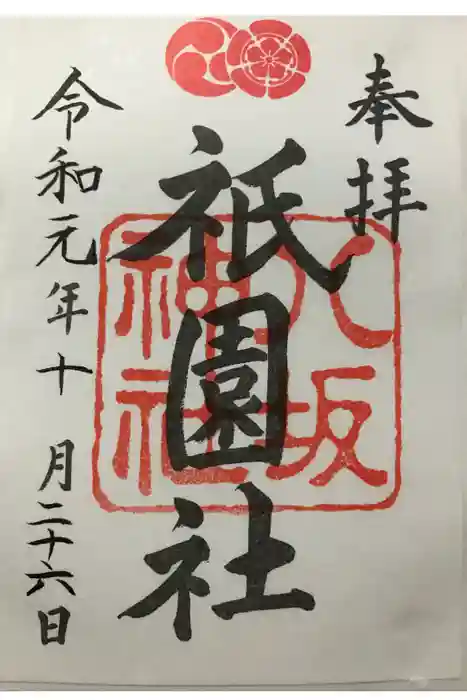 奉拝
祇園社
八坂
神社
令和元年十月二十六日